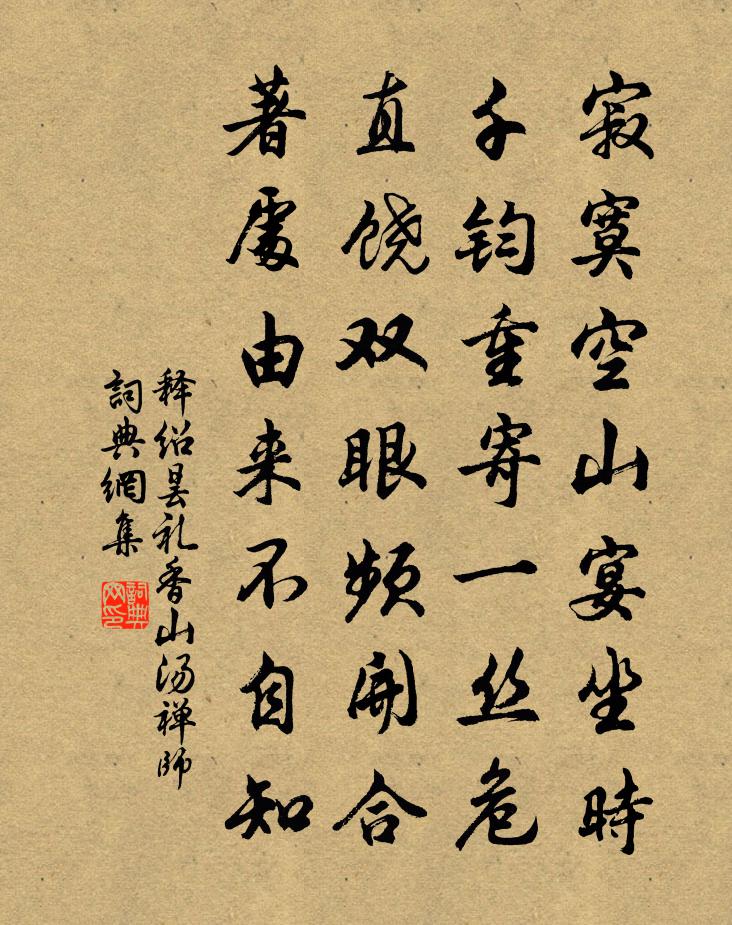 寂寞空山宴坐時
千钧重寄一丝危
直饶双眼频開合
著處由来不自知
释绍曇礼香山汤禅師
詞典網集
詞典网印